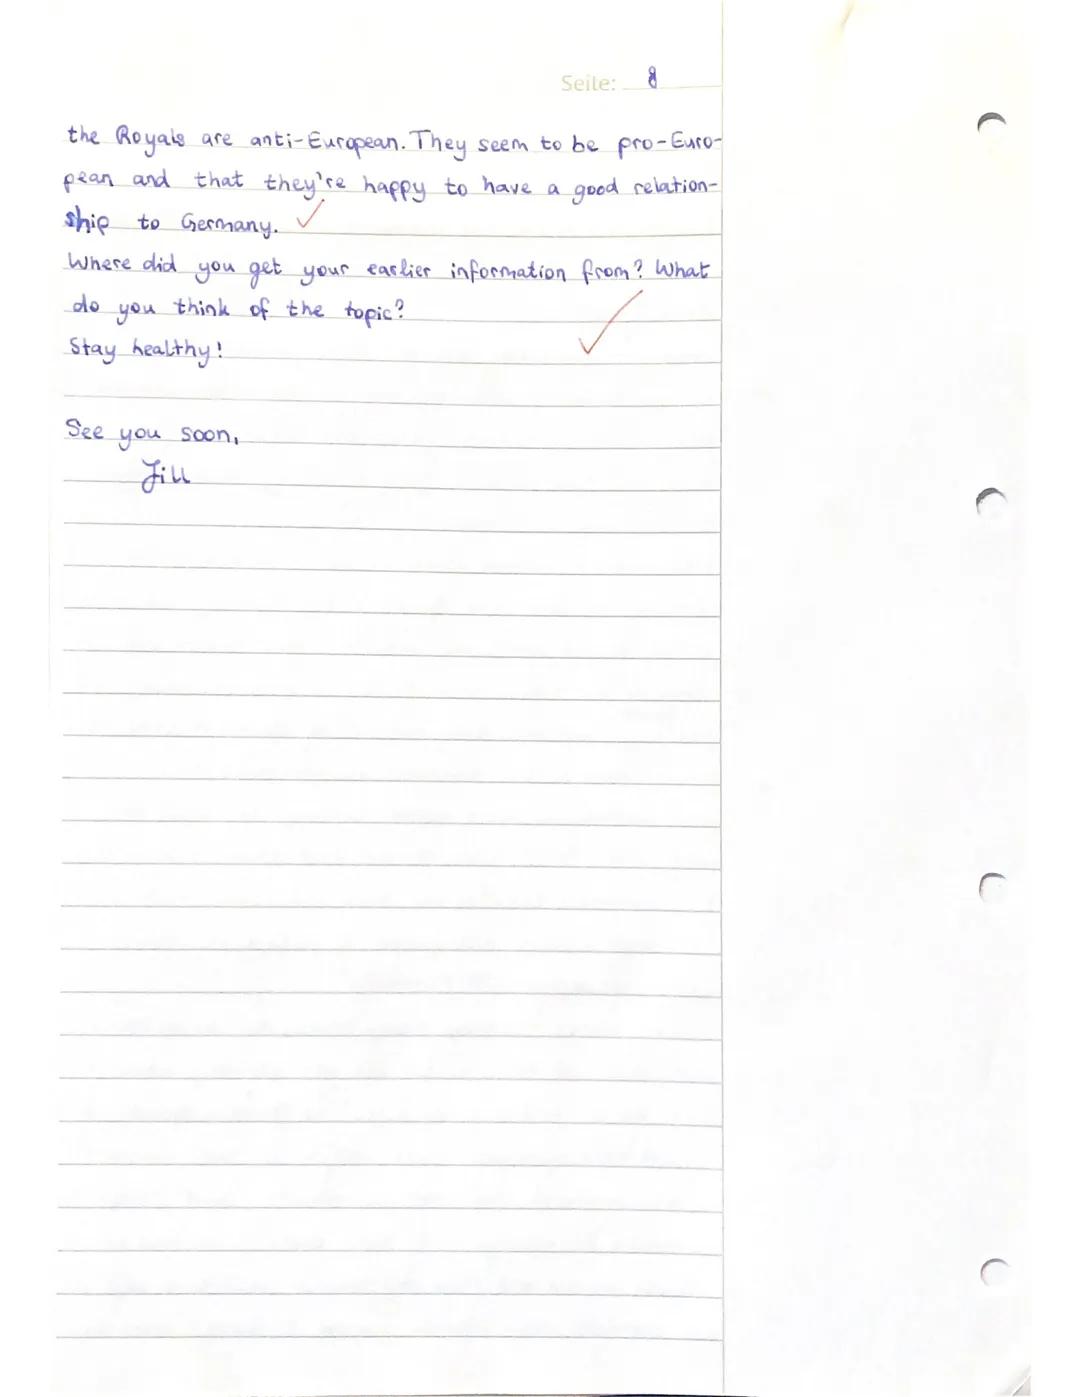 Seite: 8
the Royals are anti-European. They seem to be pro-Euro-
pean and that they're happy to have a good relation-
ship to Germany.
Where did you get your earlier information from? What
do you think of the topic?
Stay healthy!
See you soon,
Jill